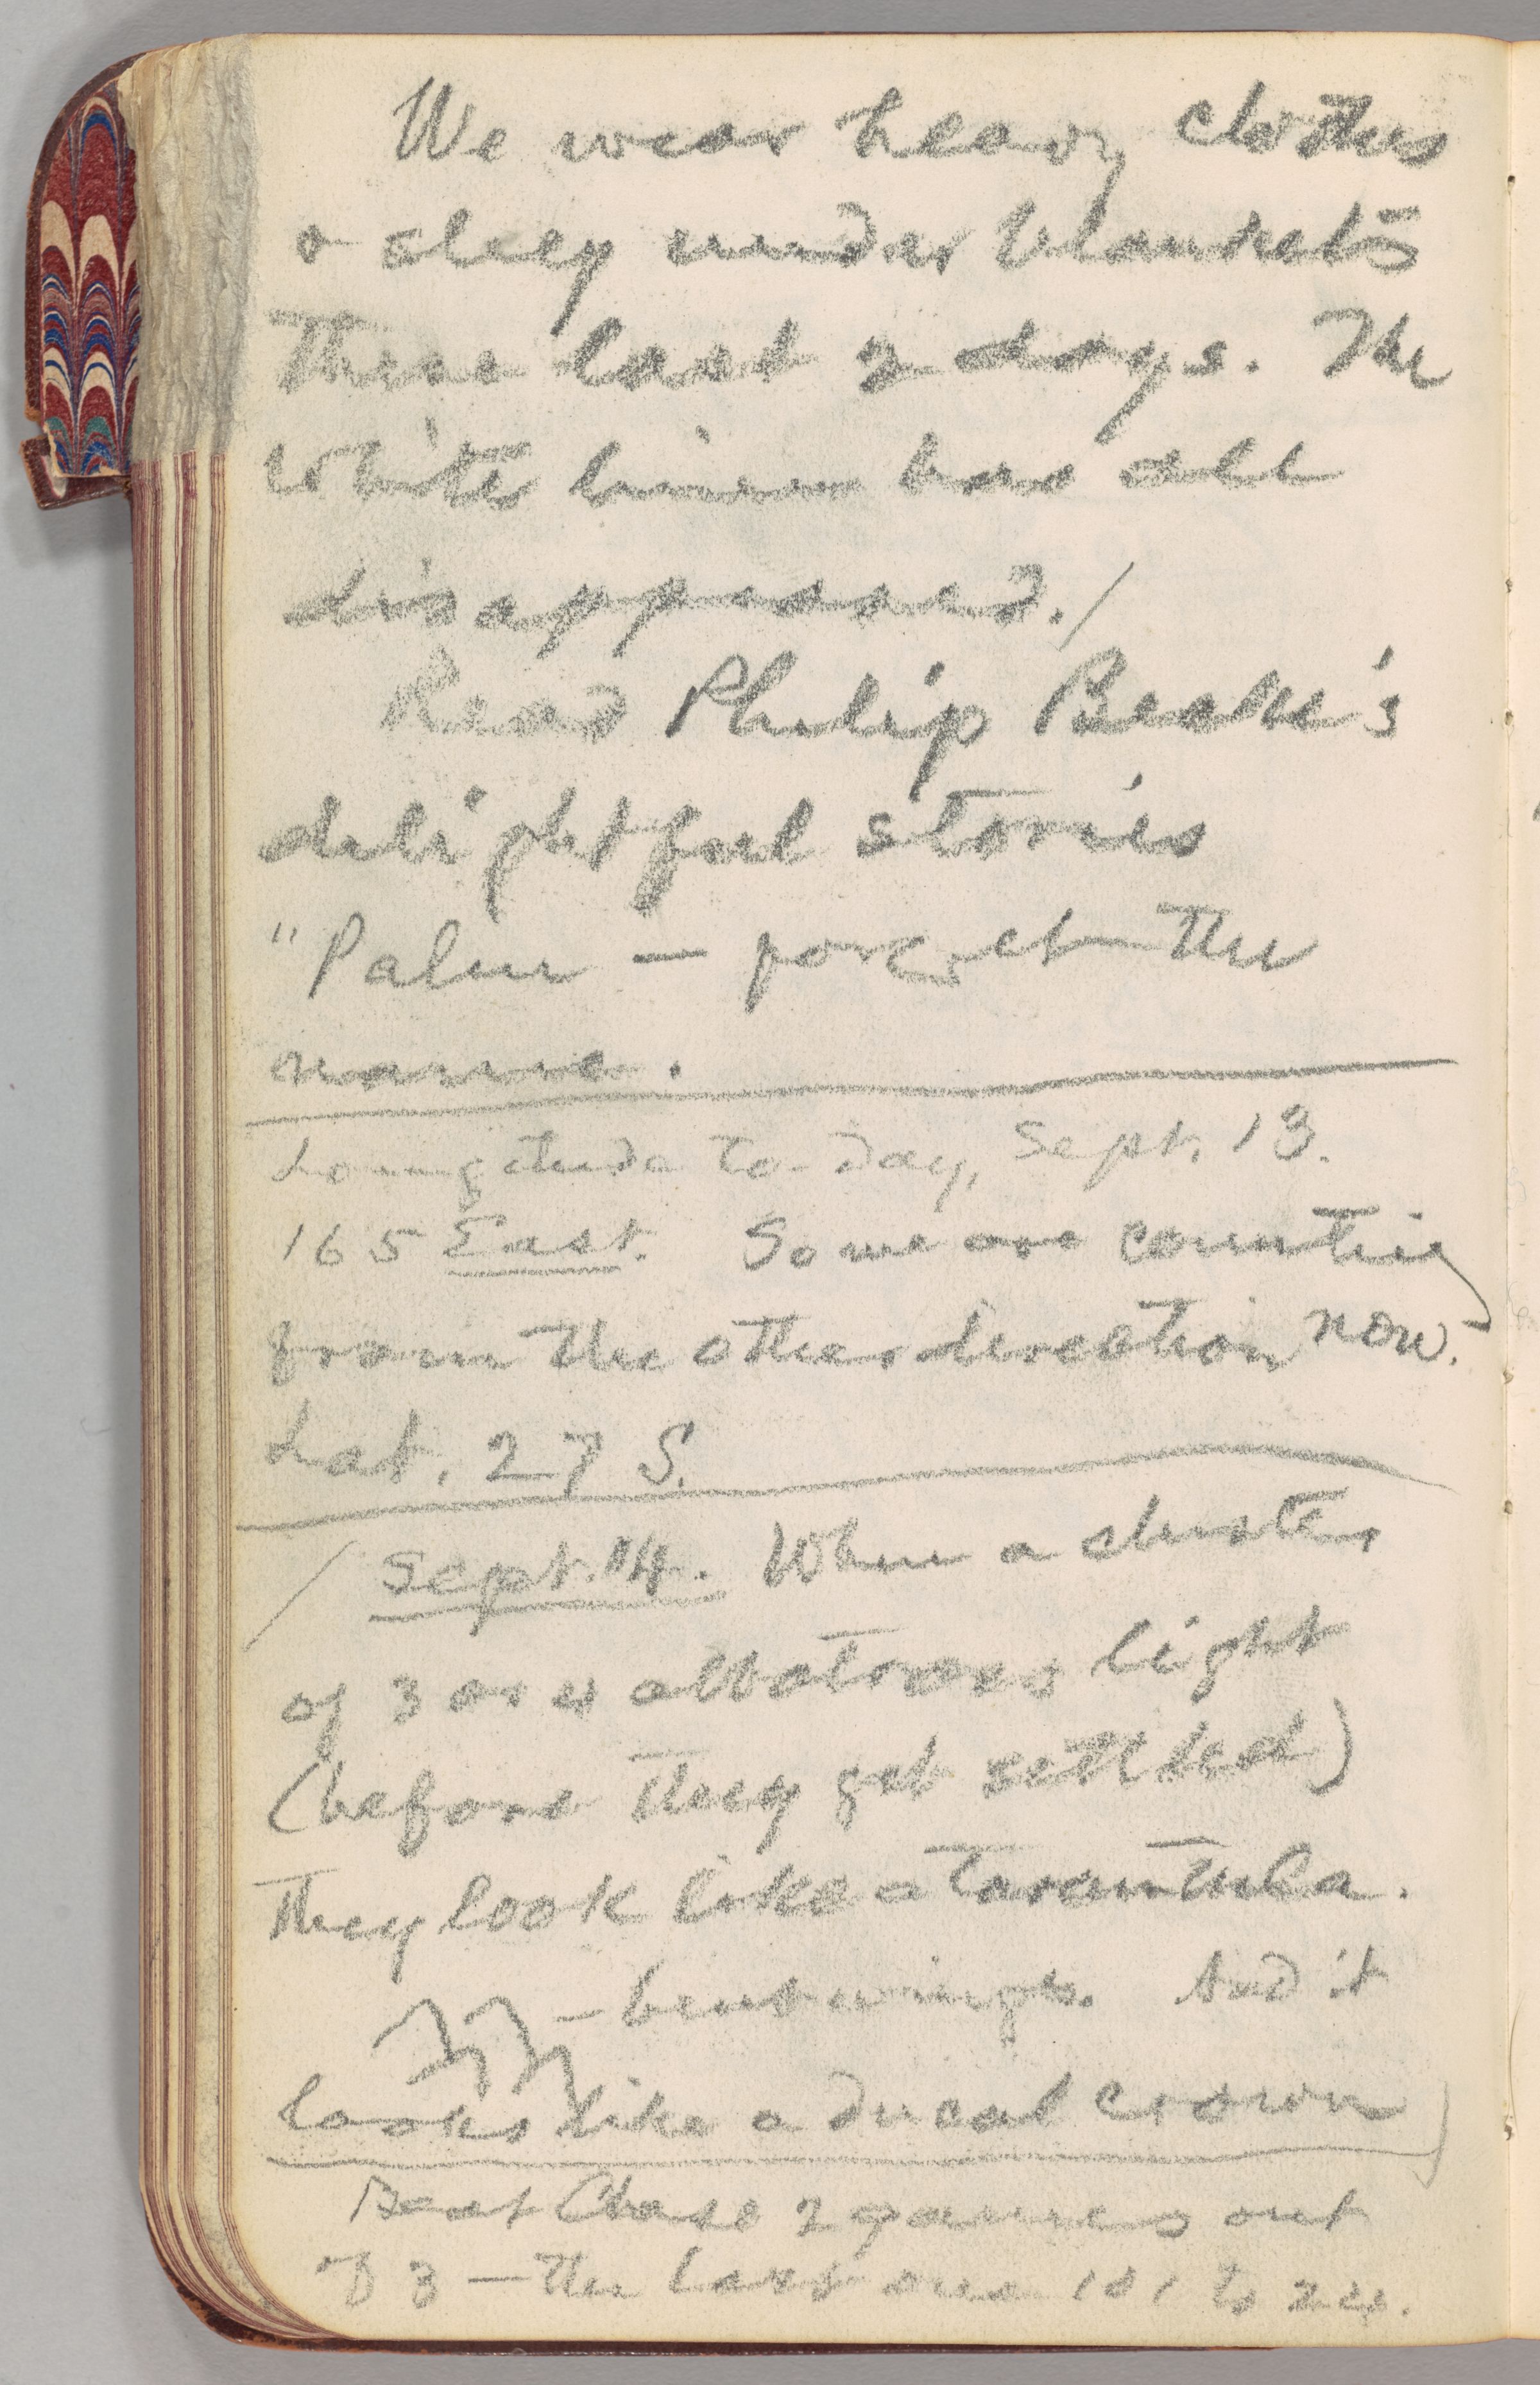 We wear heavy clothes
& sleep under blankets
these last 2 days. The
white linen has all
disappeared. /
Read Philip Beake's
delightful stories
"Palm — forget the
name.
Longitude to-day, Sept. 13.
165 East. Some are counting
from the other direction now.
Lat. 27 S.
/ Sept. 14. When a cluster
of 3 or 4 albatrosses light
(before they get settled)
they look like a tarantula.
– bent wings. And it
looks like a ducal crown
Beat Chase 2 games out
of 3 — the last one 101 to 24.